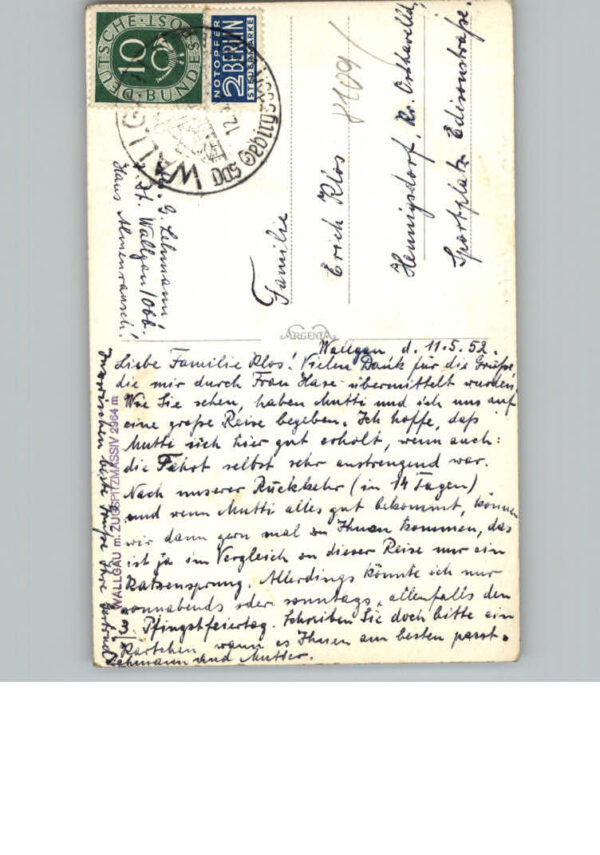 DEUTSCHE BUNDESPOST
10
NOTOPFER
2 BERLIN
STEUERMARKE
WALLGAU
8109
G. Lehmann
z. Zt. Wallgau/Obb.
Haus Almenrausch!
Familie
Erich Klos
Hennigsdorf, Kr. Osthavelld.
Sportplatz Edisonstraße.
ARGENTA
WALLGAU m. ZUGSPITZMASSIV 2964 m
Wallgau, d. 11.5.52.
Liebe Familie Klos! Vielen Dank für die Grüße,
die mir durch Frau Hase übermittelt wurden.
Wie Sie sehen, haben Mutti und ich uns auf
eine große Reise begeben. Ich hoffe, daß
Mutti sich hier gut erholt, wenn auch
die Fahrt selbst sehr anstrengend war.
Nach unserer Rückkehr (in 14 Tagen)
und wenn Mutti alles gut bekommt, können
wir dann gern mal zu Ihnen kommen, das
ist ja im Vergleich zu dieser Reise nur ein
Katzensprung. Allerdings könnte ich nur
sonnabends oder sonntags, allenfalls den
3. Pfingstfeiertag. Schreiben Sie doch bitte ein
Kärtchen, wann es Ihnen am besten passt.
Inzwischen beste Grüße Ihre Gertrud
Lehmann und Mutter.